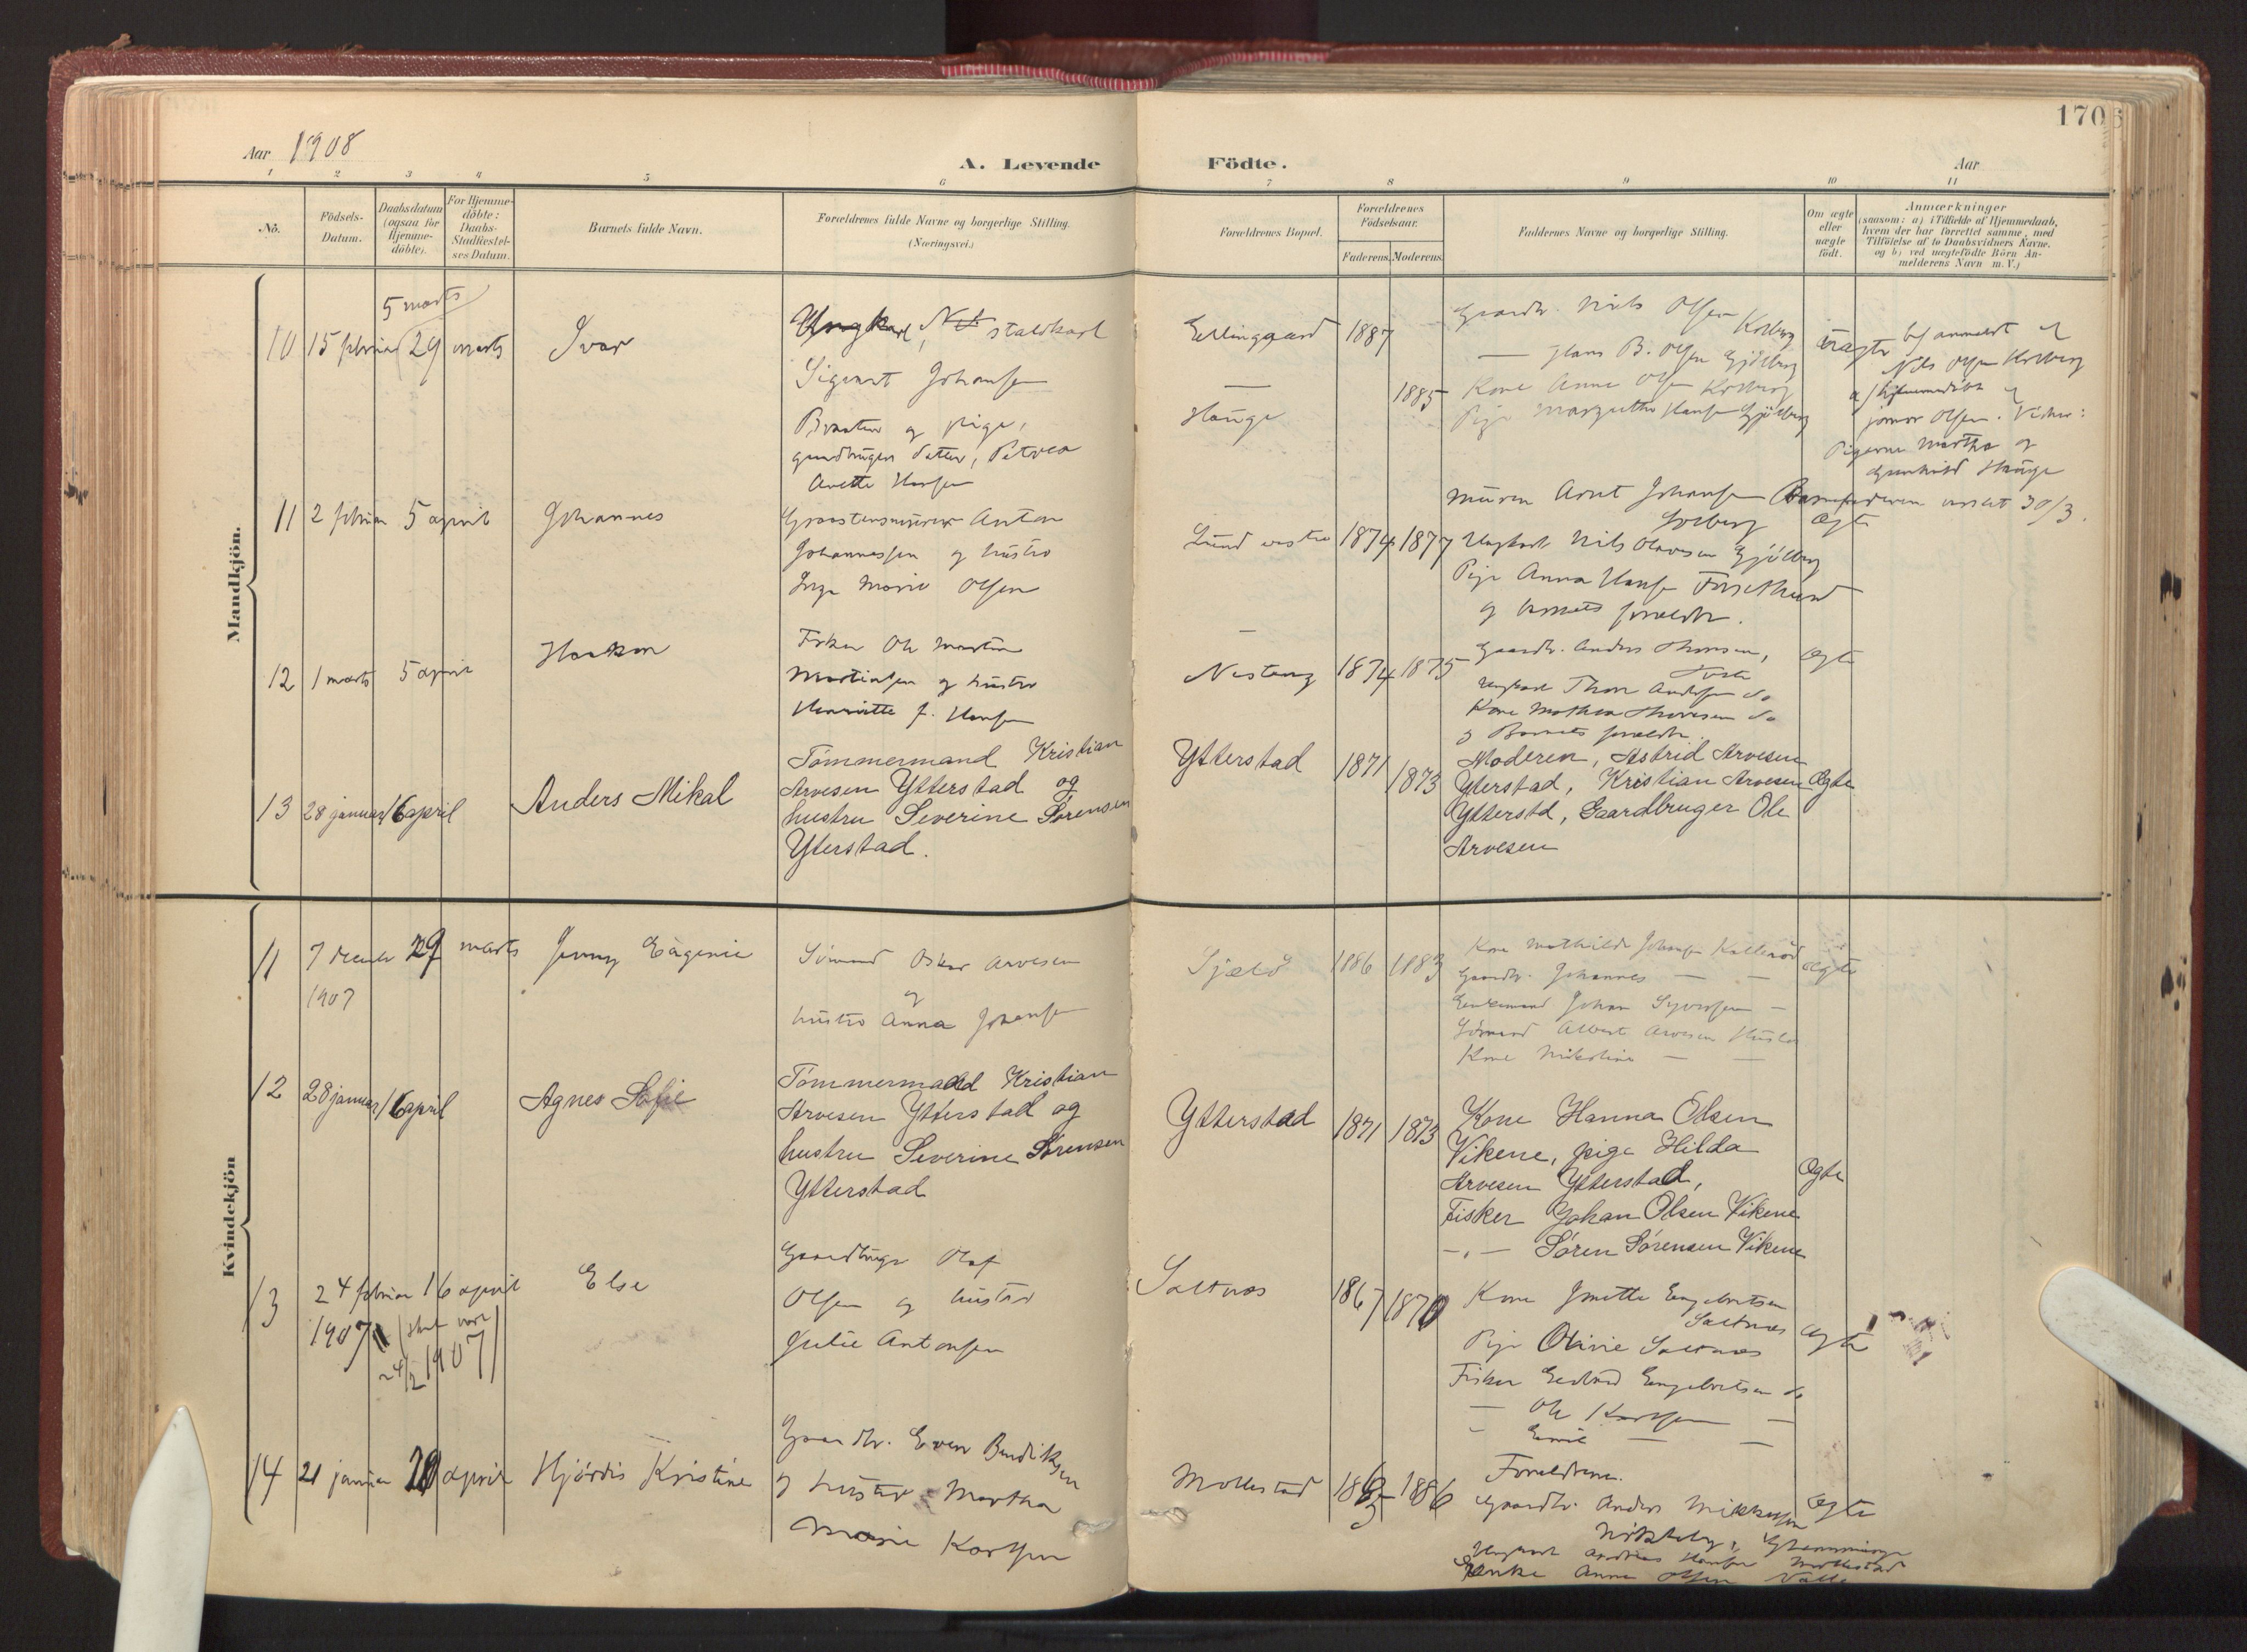 170
Aar 1908
A. Levende Födte.
Aar
1 2 3 4 5 6 7 8 9 10 11
No.
Födsels-
Datum.
Daabsdatum
(ogsaa for
Hjemme-
döbte).
For Hjemme-
döbte:
Daabs-
Stadfæstel-
ses Datum.
Barnets fulde Navn.
Forældrenes fulde Navne og borgerlige Stilling.
(Næringsvei.)
Forældrenes Bopæl.
Forældrenes
Födselsaar.
Faderens. Moderens.
Faddernes Navne og borgerlige Stilling.
Om ægte
eller
uægte
födt.
Anmærkninger
(saasom: a) i Tilfælde af Hjemmedaab,
hvem der har forrettet samme, med
Tilföielse af to Daabsvidners Navne,
og b) ved uægtefödte Börn An-
melderens Navn m. V.)
Mandkjön.
5 marts
10 15 februar 29 marts Ivar
Ungkarl, staldkarl
Sigvart Johansen
Braaten og pige,
gaardbrugers datter, Petrea
Anette Hansen
Ellingaard 1887
— Hauge 1885
Gaardbr. Nils Olsen
Kolberg
— Hans B. Olsen Gjölberg
Kone Anna Olsen Kolberg
Pige Margrethe Hansen Gjölberg
uægte
b) anmeldt af
Nils Olsen Kolberg
a) hjemmedöbt af
jomor Olsen. Vidner:
Pigerne Martha og
Gunhild Hauge
11 2 februar 5 april Johannes
Graastensmurer Anton
Johannessen og hustru
Inga Marie Olsen
Lund vestre 1874 1877
Murer Arnt Johansen
Solberg
Ungkarl Nils Olavesen Gjölberg
Pige Anna Hansen
og barnets forældre.
Ægte
Barnefaderen 30/3.
12 1 marts 5 april Haakon
Fisker Ole Martin
Martinsen og hustru
Henriette f. Hansen
Nestang 1874 1875
Gaardbr. Anders Thoresen,
Ungkarl Thore Andersen do
Kone Mathea Thoresen do
og Barnets forældre.
Ægte
13 28 januar 16 april Anders Mikal
Tömmermand Kristian
Arvesen Ytterstad og
hustru Severine Sörensen
Yterstad.
Ytterstad 1871 1873
Moderen, Astrid Arvesen
Yterstad, Kristian Arvesen
Ytterstd, Gaardbruger Ole
Arvesen
Ægte
Kvindekjön
11 7 decembr 29 marts Jenny Eugenie
1907
Sömand Oskar Arvesen
og
hustru Anna Johansen
Sjælö 1886 1883
Kone Mathilde Johansen Kalleröd
Gaardbr. Johannes — —
Enkemand Johan Syversen —
Sömand Albert Arvesen
Kone Nikoline — —
Ægte
12 28 januar 16 april Agnes Sofie
Tommermadd Kristian
Arvesen Ytterstad og
hustru Severine Sörensen
Ytterstad
Ytterstad 1871 1873
Kone Hanna Olsen
Vikene, pige Hilda
Arvesen Ytterstad,
Fisker Johan Olsen Vikene
-„- Sören Sörensen Vikene
Ægte
13 24 februar 16 april Else
1907 (skal være
24/2 1907)
Gaardbruger Olaf
Olsen og hustru
Julie Antonsen
Saltnes 1867 1870
Kone Josette Engebretsen
Saltnes
Pige Olivie Saltnes
Fisker Edvard Engebretsen do
— Ole Karlsen —
- Emil — —
Ægte
14 21 januar 20 april Hjördis Kristine
Gaardbr. Even Bendiksen
og hustru Martha
Marie Karlsen
Mollestad 1863 1886
Forældrene.
Gaardbr. Anders Mikkelsen
Ungkarl Andreas Hansen Mollestad
Enke Anna Olsen Valle
Ægte